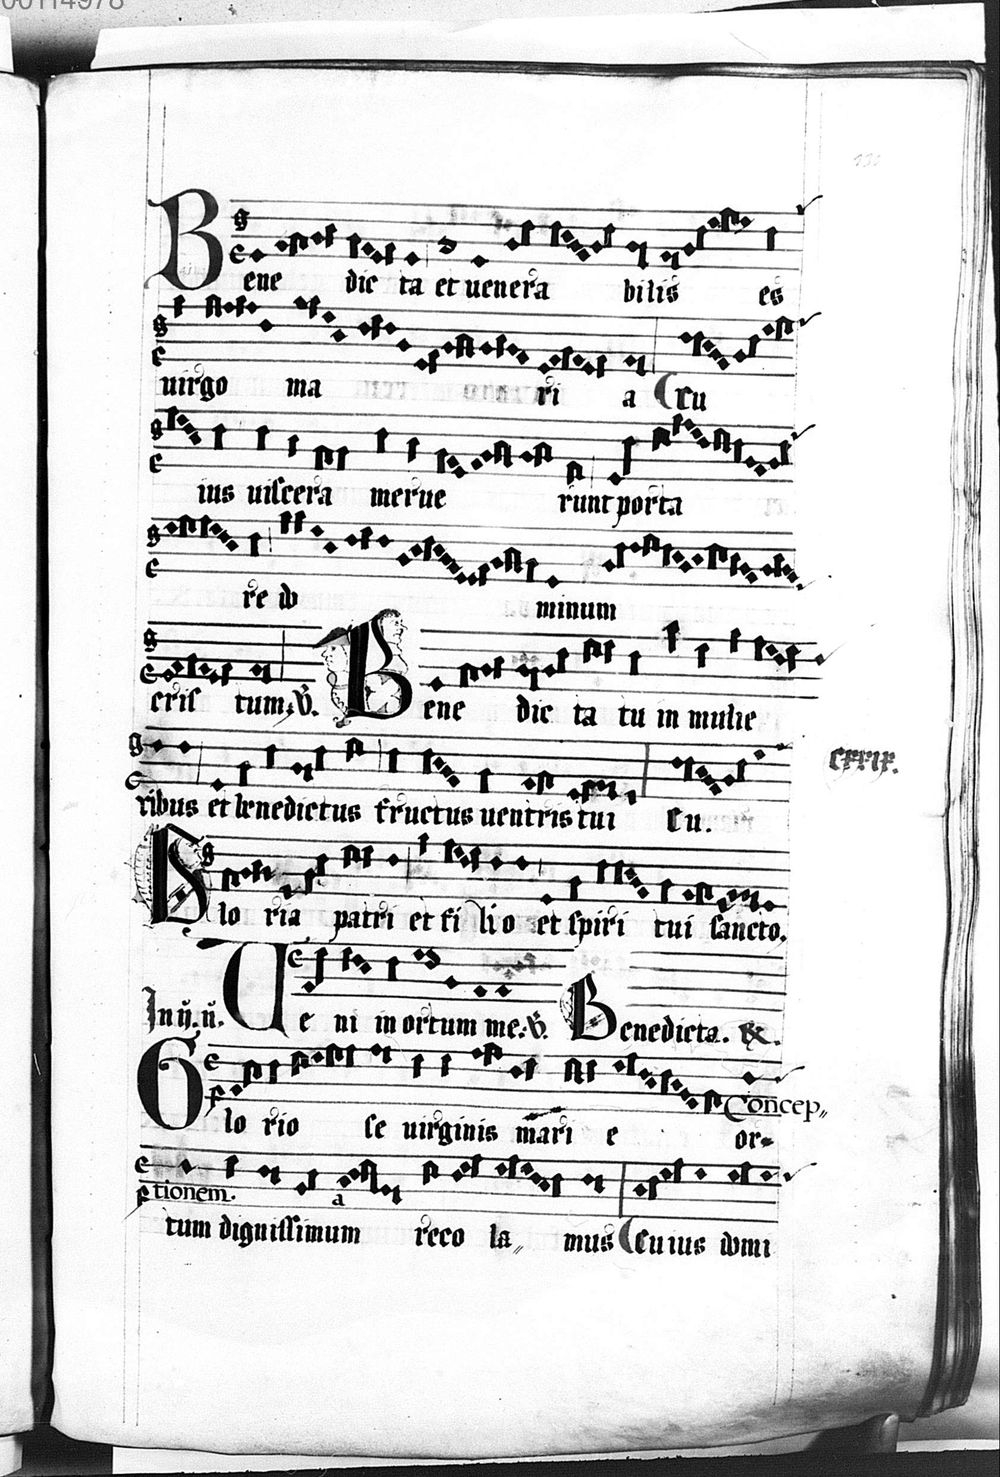 00114978
133
Bene dic ta et uenera bilis es
uirgo ma ri a Cu
ius uiscera merue runt porta
re do minum
cris tum. V. Bene dic ta tu in mulie
ribus et benedictus fructus uentris tui Cu.
CXXIX.
Glo ria patri et fi lio et spiri tui sancto.
In ij. n. Ue ni in ortum me. V. Benedicta. R.
Glo rio se uirginis mari e or-
Concep„
tionem. a
tum dignissimum reco la„ mus Cuius domi